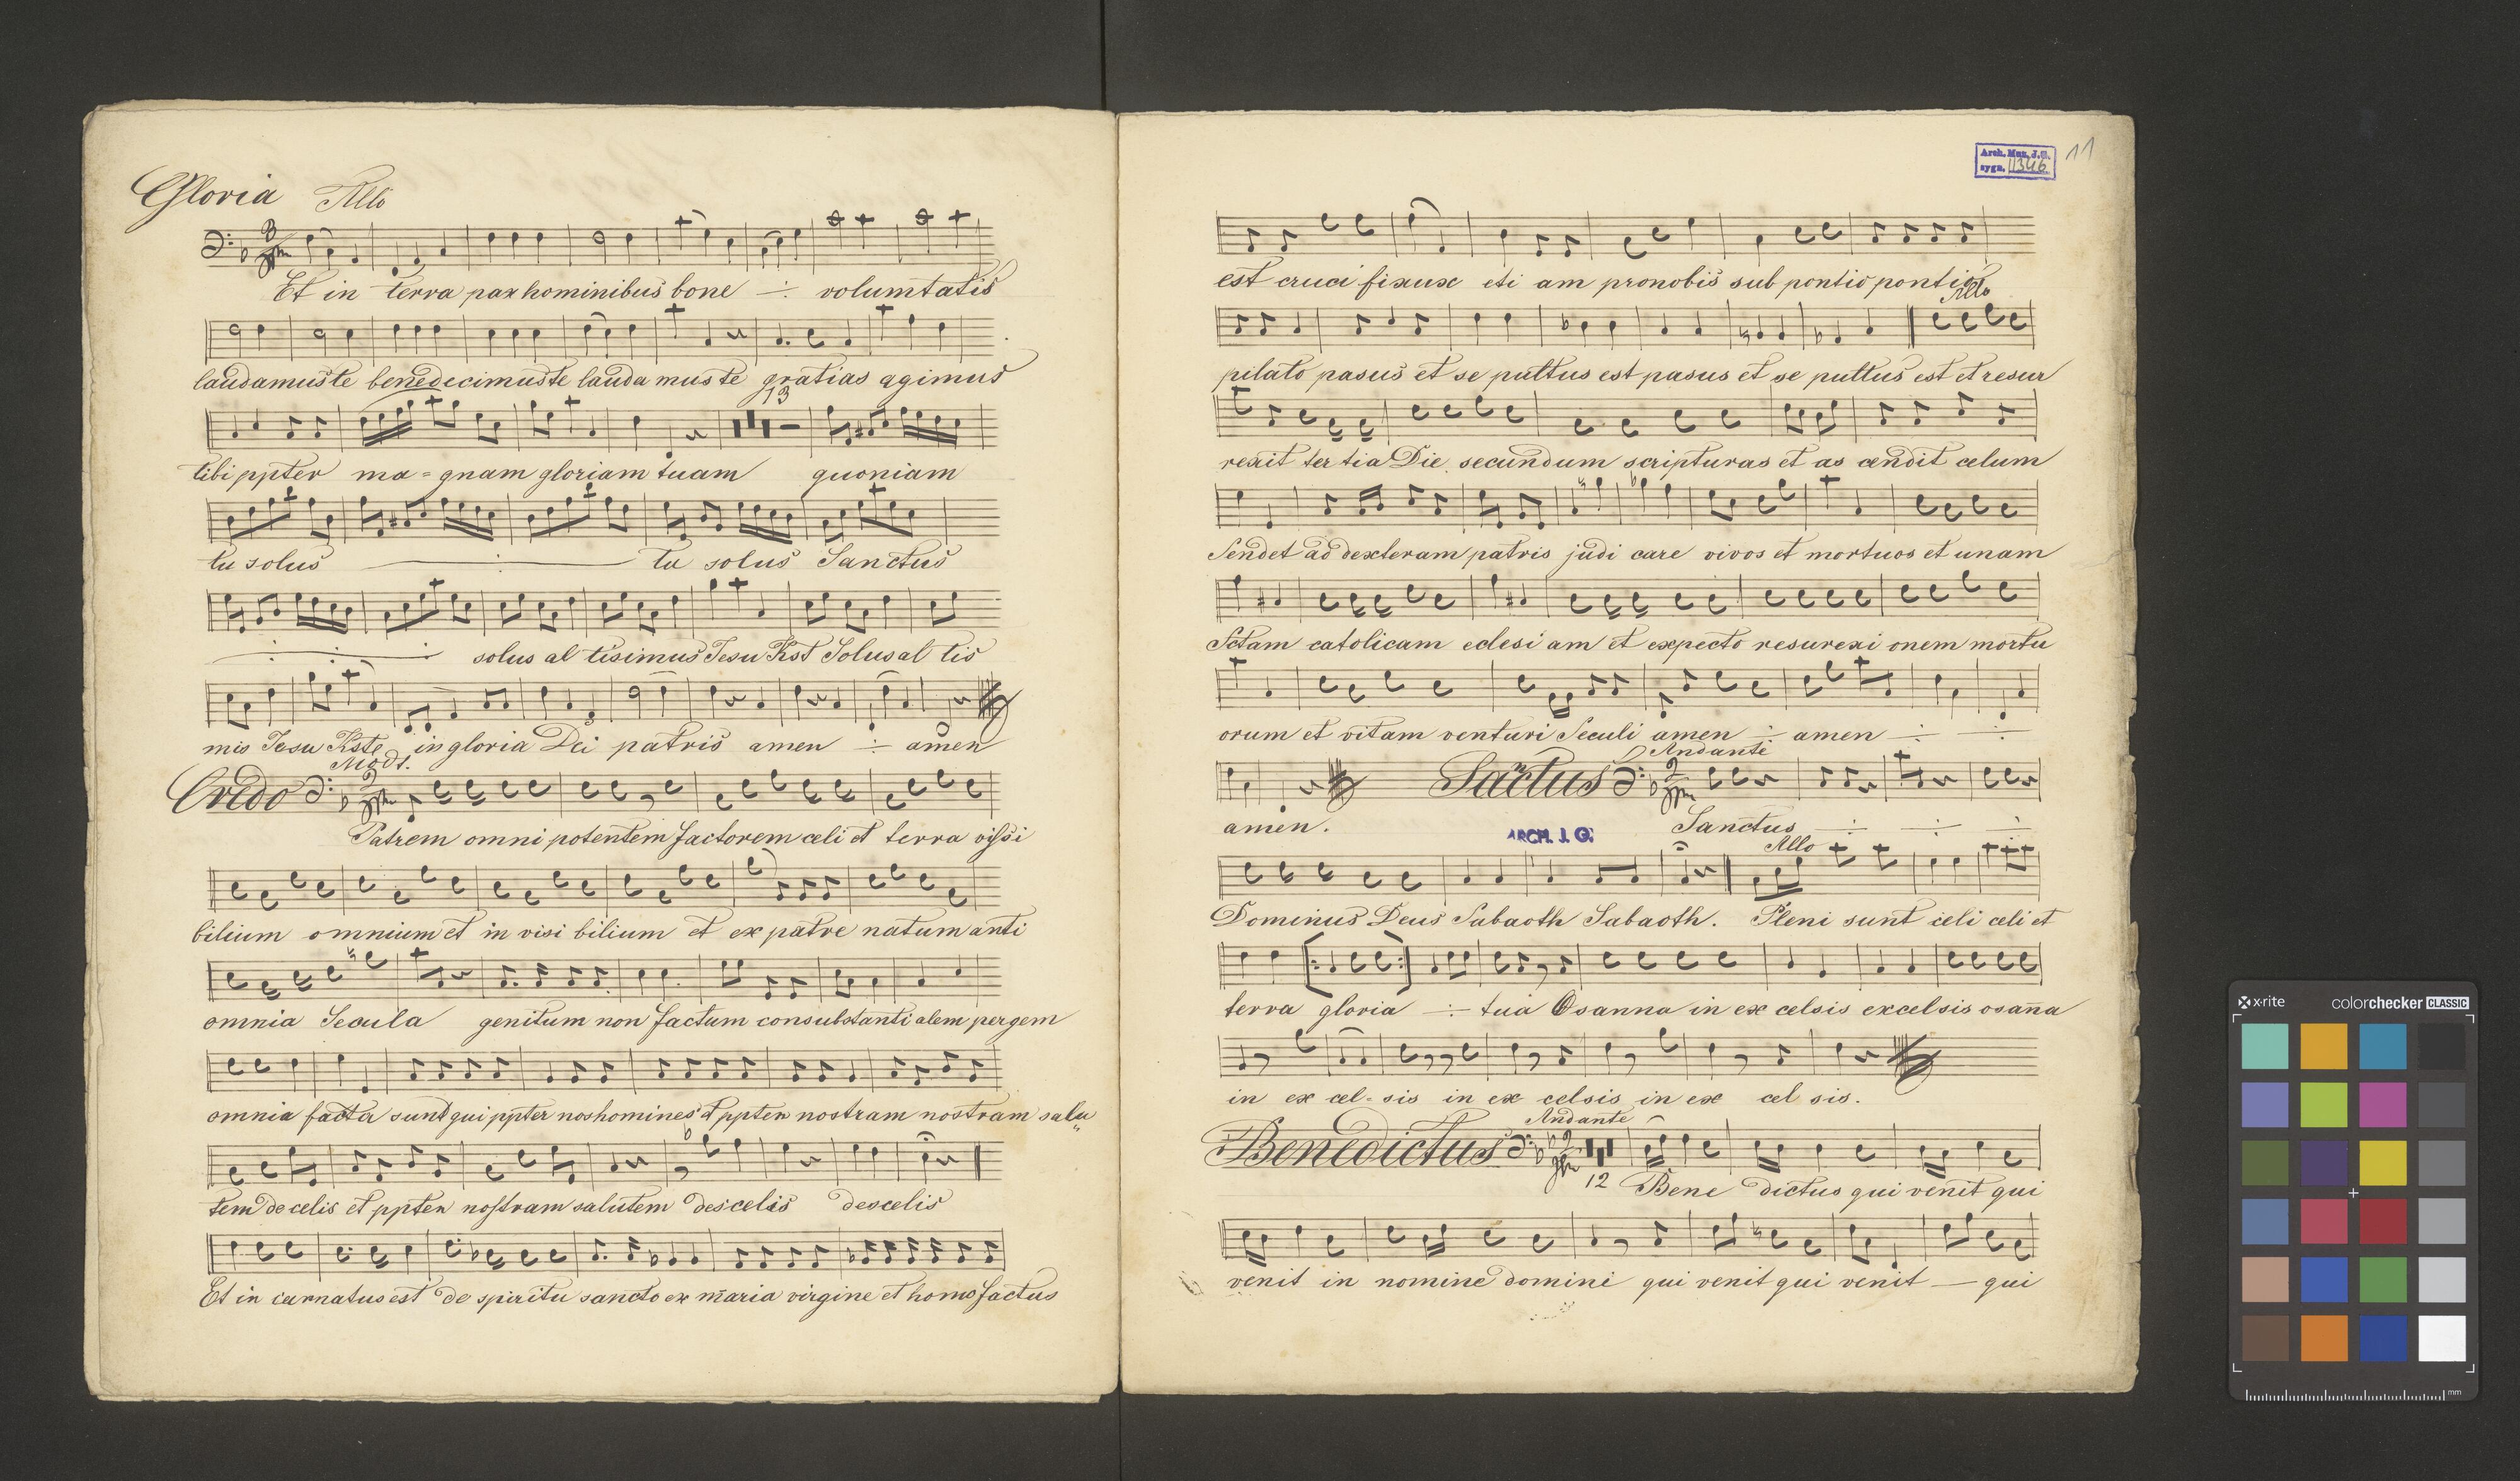 Gloria Allo
Et in terra pax hominibus bone ÷ volumtatis
laudamuste benedecimuste lauda mus te gratias agimus
13
tibi ppter ma = gnam gloriam tuam quoniam
tu solus ÷ tu solus Sanctus
solus al tisimus Jesu Kst Solus al tis
mis Jesu Kste in gloria Dei patris amen ÷ amen
Credo Modt.
Patrem omni potentem factorem celi et terra vissi
bilium omnium et in visi bilium et ex patre natum anti
omnia Secula genitum non factum consubstanti alem per gem
omnia facta sunt qui ppter nos homines et ppter nostram nostram salu
tem de celis et ppter nostram salutem descelis descelis
Et in carnatus est de spiritu sancto ex maria virgine et homo factus
Arch. Muz. J.G.
sygn. 11346
11
est cruci fixux eti am pronobis sub pontio pontio
Allo
pilato pasus et se pultus est pasus et se pultus est et resur
rexit ter tia Die secundum scripturas et as cendit celum
Sendet ad dexteram patris judi care vivos et mortuos et unam
Sctam catolicam eclesi am et expecto resurexi onem mortu
orum et vitam venturi Seculi amen ÷ amen ÷ ÷
Sanctus Andante
amen. Sanctus ÷ ÷ ÷
ARCH. J. G.
Allo
Dominus Deus Sabaoth Sabaoth. Pleni sunt celi celi et
terra gloria ÷ tua Osanna in ex celsis excelsis osana
in ex cel = sis in ex celsis in ex cel sis.
Benedictus Andante
12 Bene dictus qui venit qui
venit in nomine domini qui venit qui venit — qui
x-rite colorchecker CLASSIC
mm